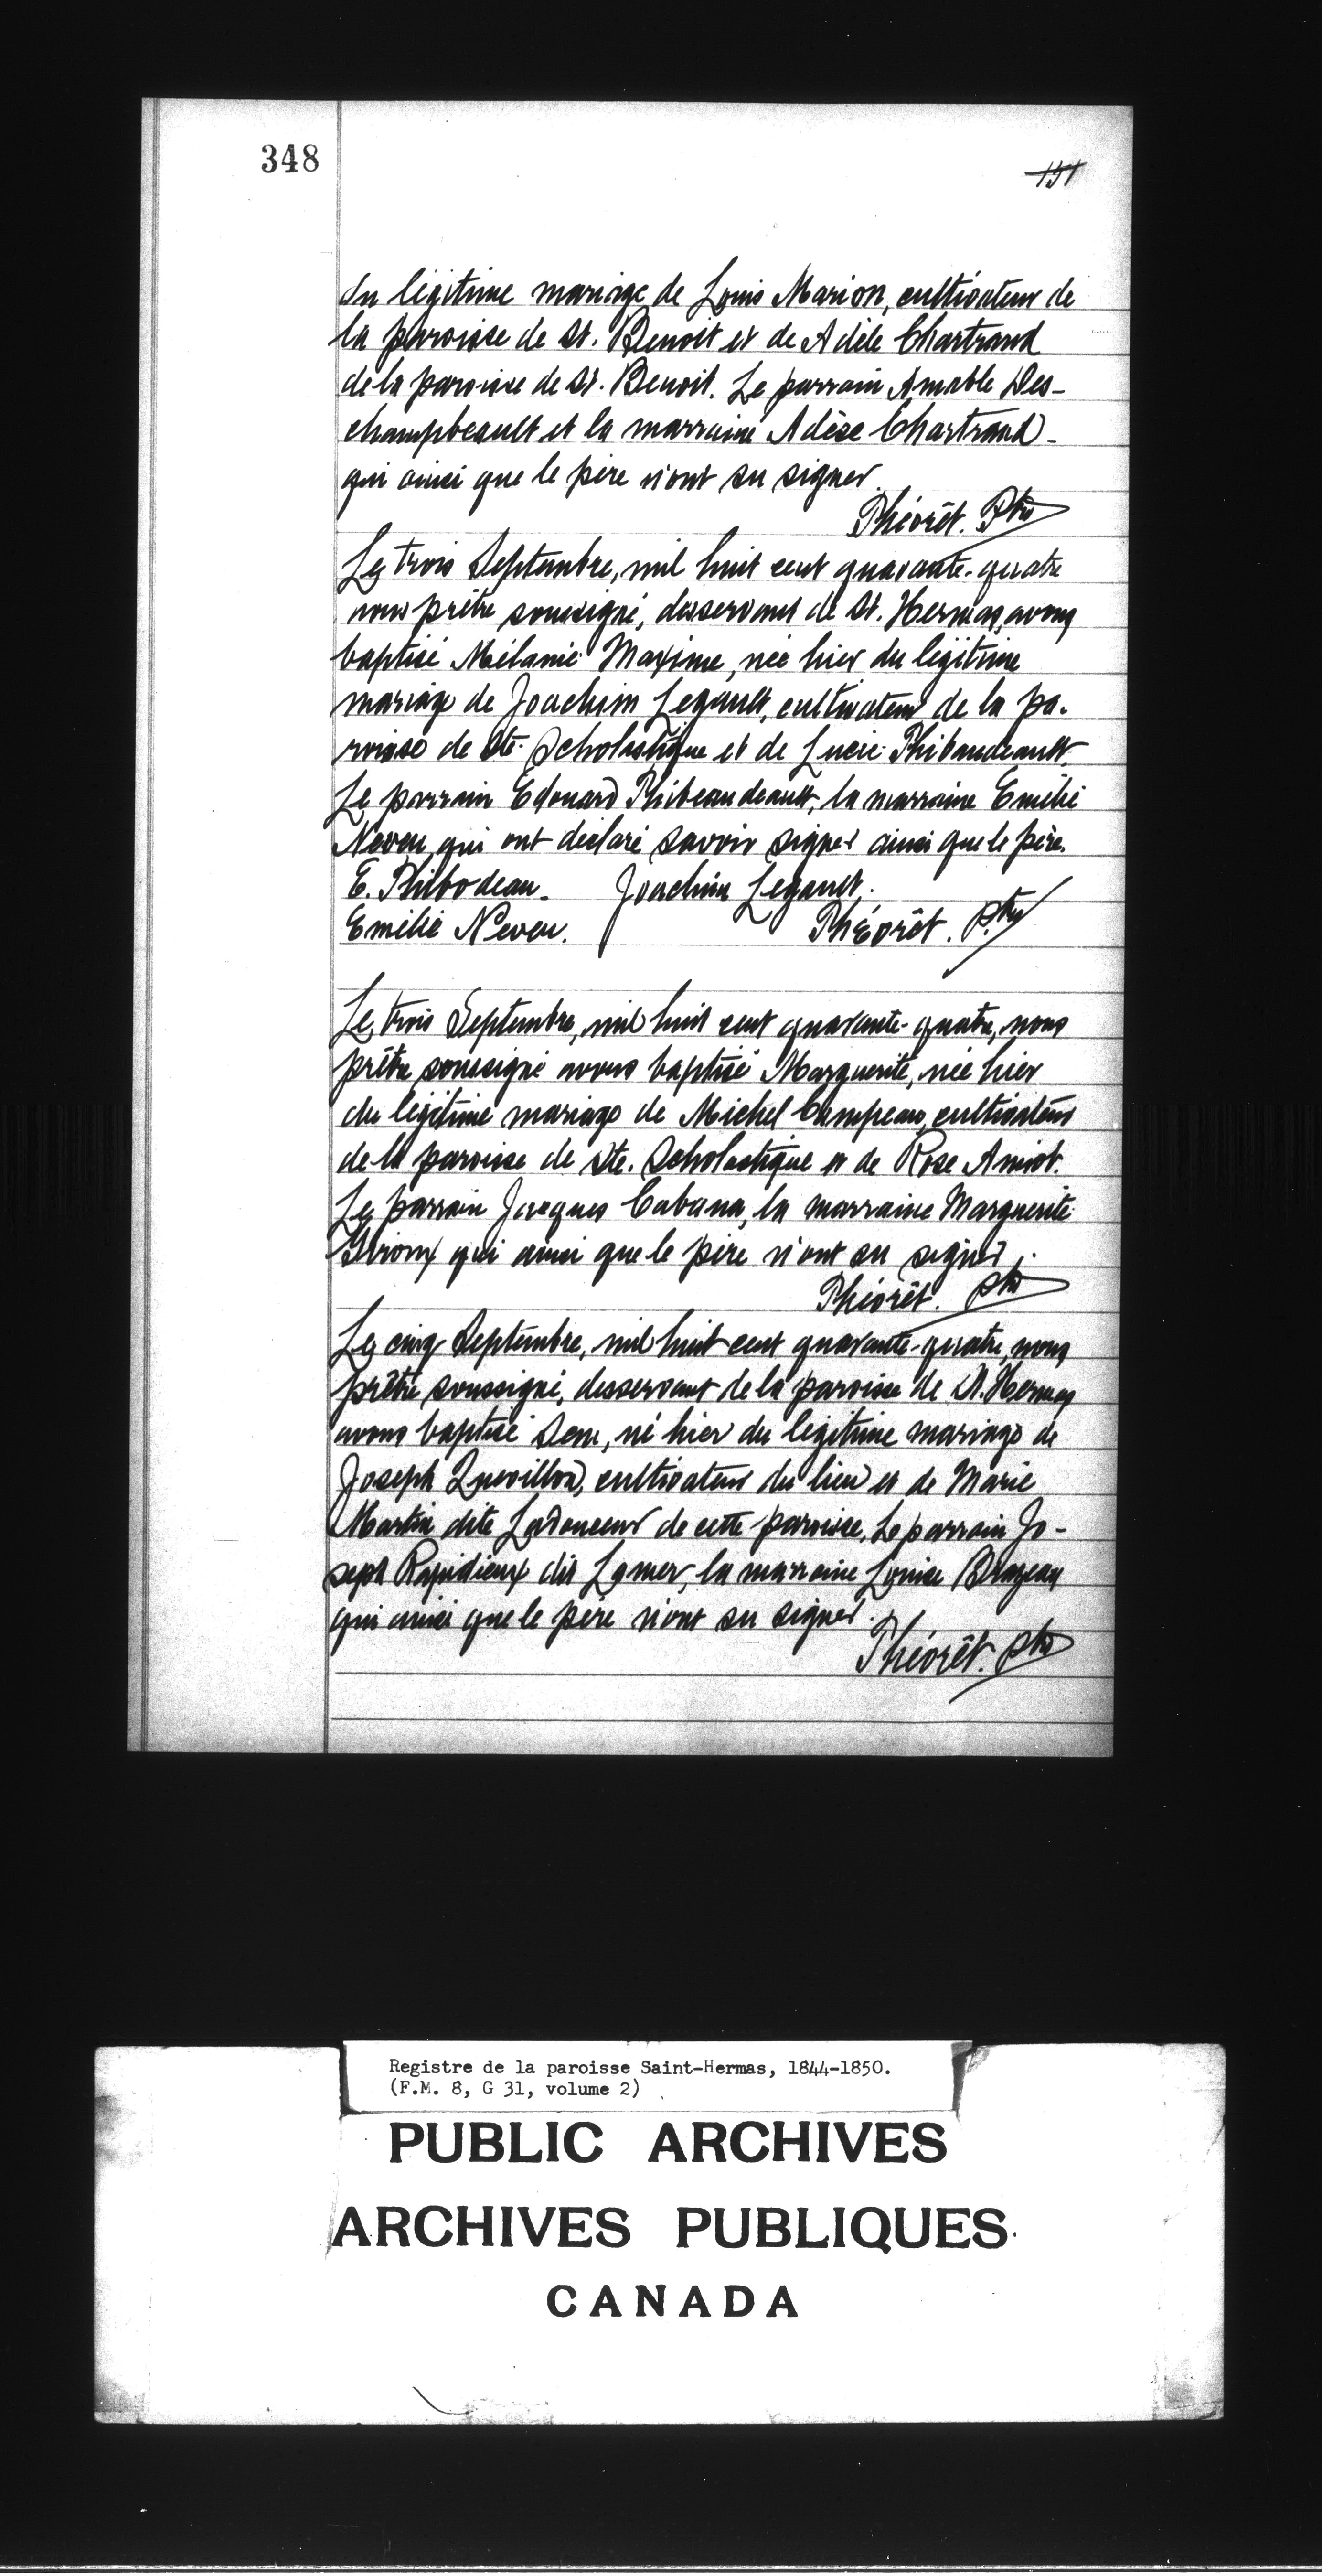 348
151
du légitime mariage de Louis Marion, cultivateur de
la paroisse de St. Benoit et de Adèle Chartrand
de la paroisse de St. Benoit. Le parrain Amable Des-
champbeault et la marraine Adèse Chartrand-
qui ainsi que le père n'ont su signer.
Théorêt. Ptre
Le trois Septembre, mil huit cent quarante-quatre
nous prêtre soussigné, desservant de St. Hermas, avons
baptisé Mélanie Maxime, née hier du légitime
mariage de Joachim Legault, cultivateur de la pa-
roisse de Ste. Scholastique et de Lucie Thibaudeault.
Le parrain Edouard Thibeaudeault, la marraine Emélie
Neveu qui ont déclaré savoir signer ainsi que le père.
E. Thibodeau. Joachim Legault.
Emélie Neveu. Théorêt. Ptre
Le trois Septembre, mil huit cent quarante-quatre, nous
prêtre soussigné avons baptisé Marguerite, née hier
du légitime mariage de Michel Campeau, cultivateur
de la paroisse de Ste. Scholastique et de Rose Amiot.
Le parrain Jacques Cabana, la marraine Marguerite
Giroux qui ainsi que le père n'ont su signer.
Théorêt. Ptre
Le cinq Septembre, mil huit cent quarante-quatre, nous
prêtre soussigné, desservant de la paroisse de St. Hermas
avons baptisé né hier du légitime mariage de
Joseph Quevillon, cultivateur du lieu et de Marie
Martin dite Ladouceur de cette paroisse. Le parrain Jo-
seph Rapidieux dit Lamer, la marraine Louise Brazeau
qui ainsi que le père n'ont su signer.
Théorêt. Ptre
Registre de la paroisse Saint-Hermas, 1844-1850.
(F.M. 8, G 31, volume 2)
PUBLIC ARCHIVES
ARCHIVES PUBLIQUES
CANADA